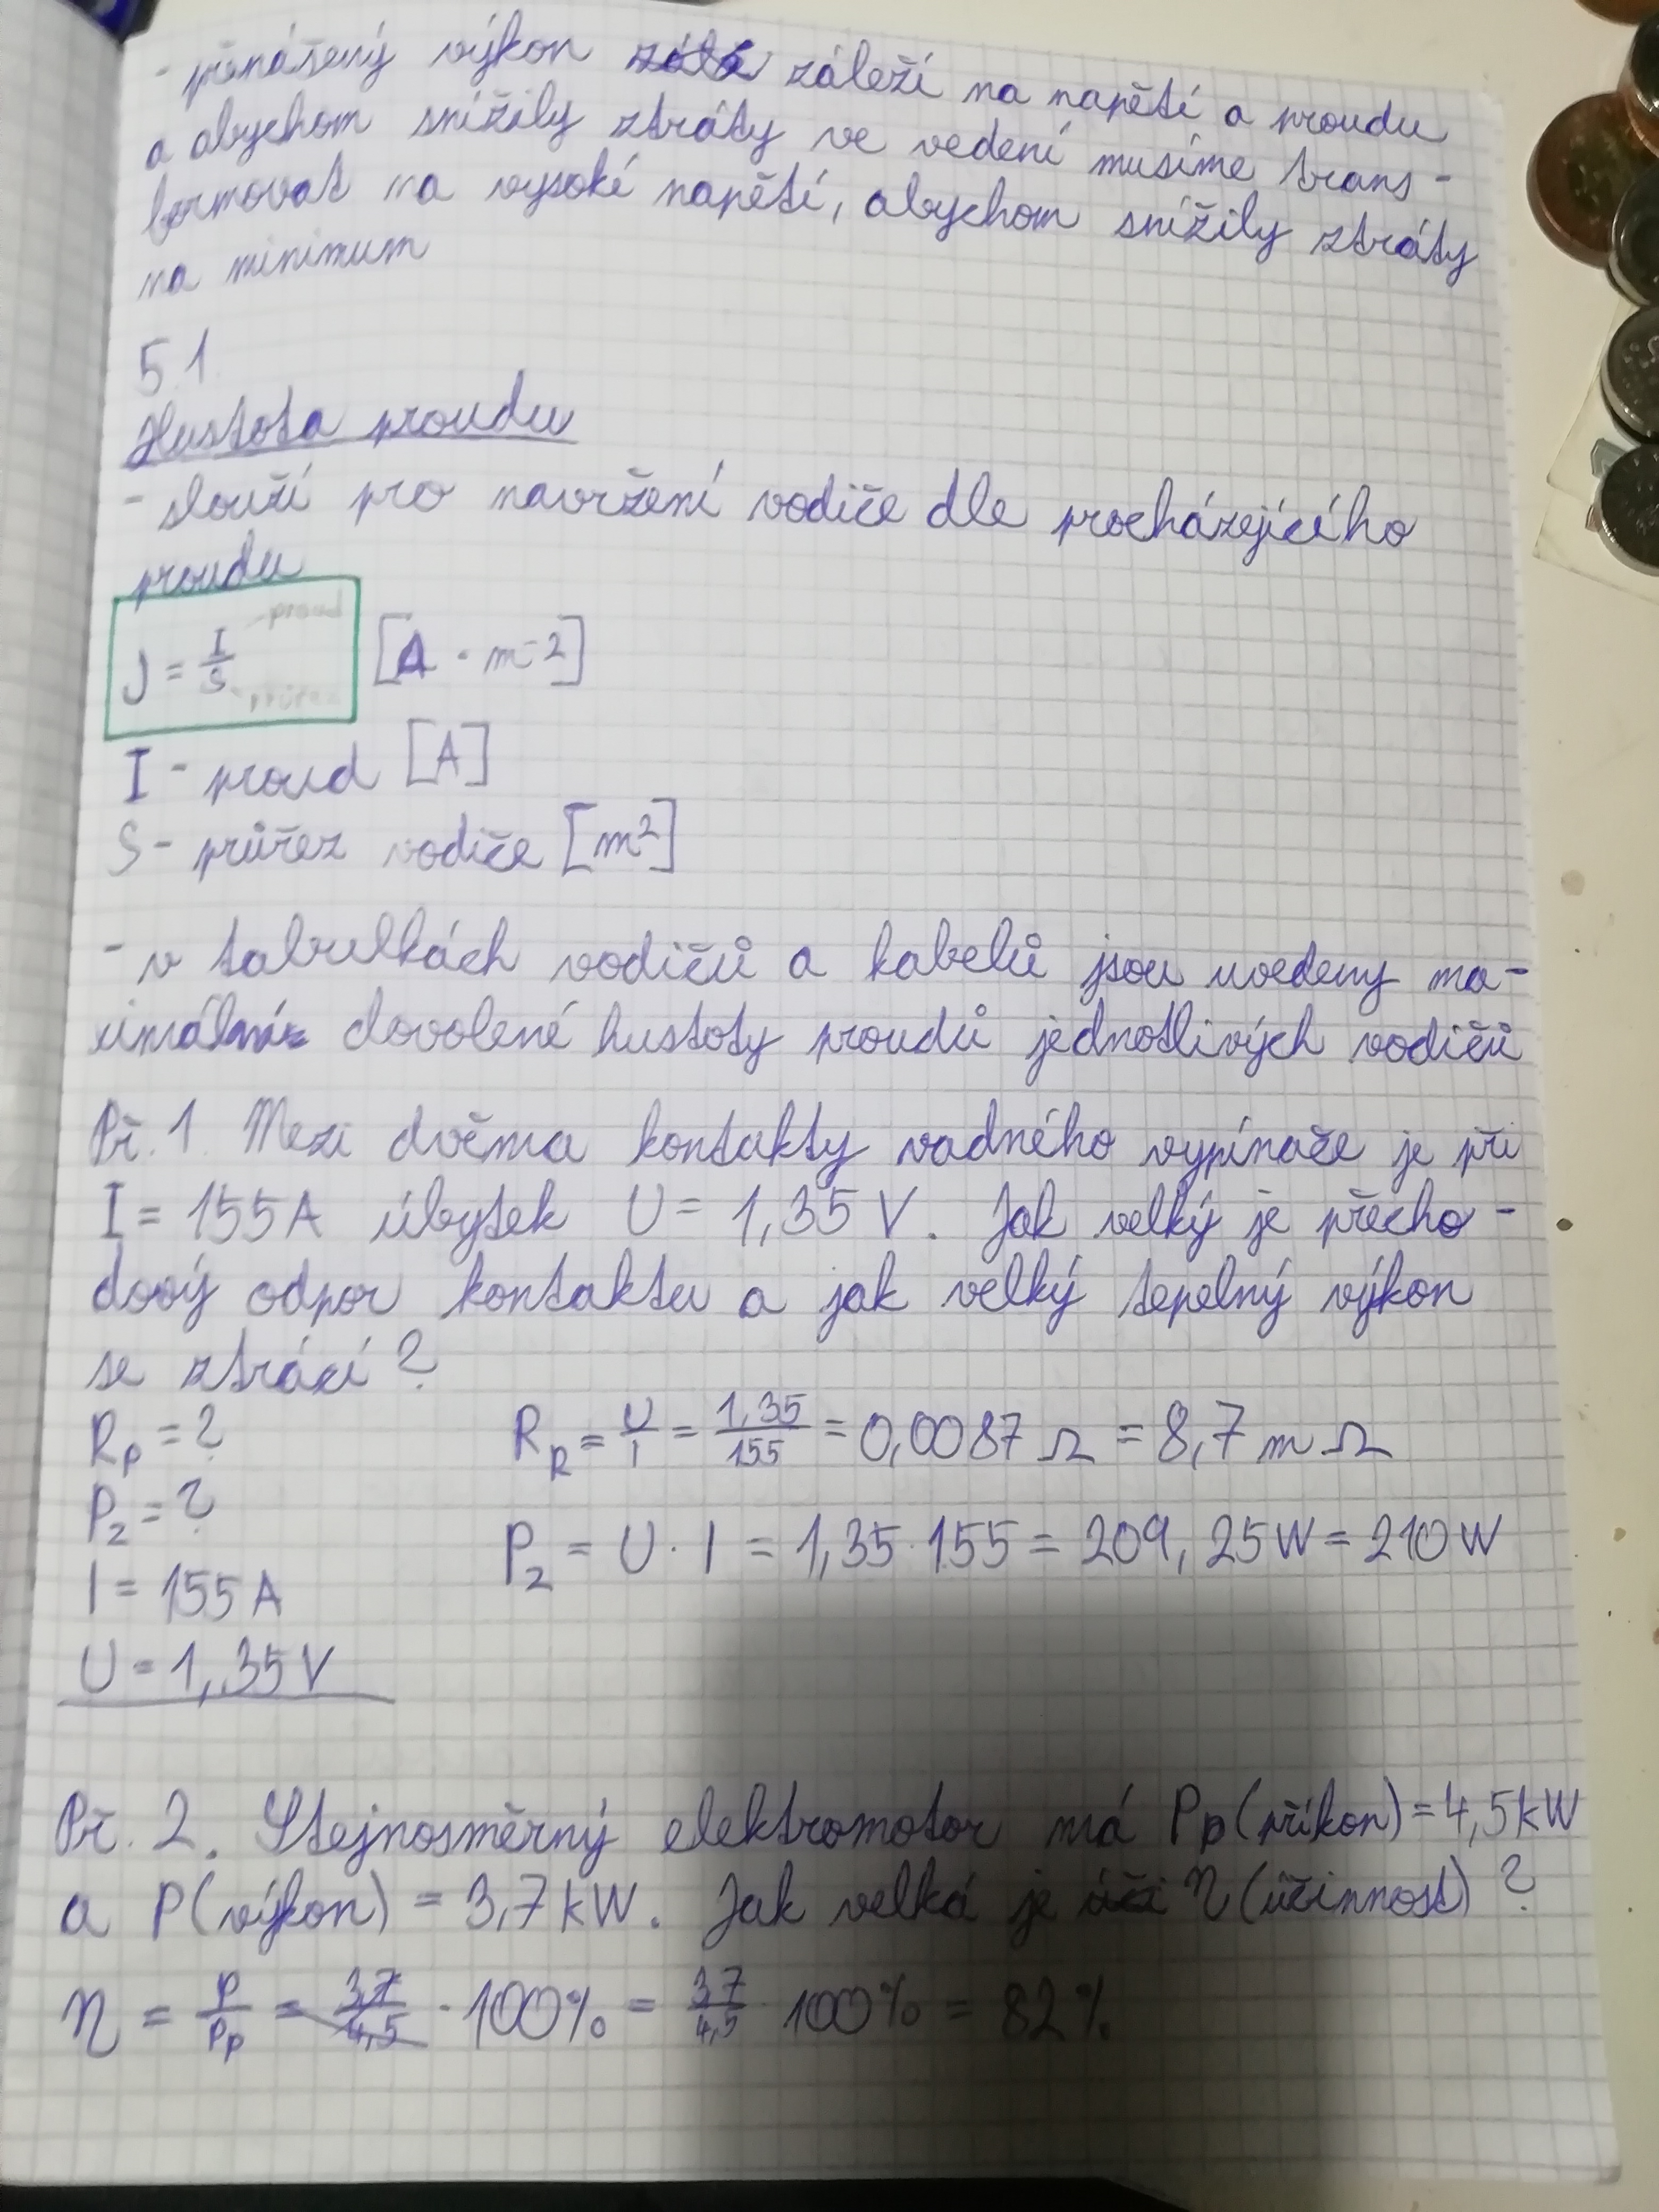 - přenášený výkon záleží na napětí a proudu
a abychom snížily ztráty ve vedení musíme trans-
formovat na vysoké napětí, abychom snížily ztráty
na minimum
5.1.
Hustota proudu
- slouží pro navržení vodiče dle procházejícího
proudu
J = I/S - proud - průřez [A · m-2]
I - proud [A]
S - průřez vodiče [m2]
- v tabulkách vodičů a kabelů jsou uvedeny ma-
ximálně dovolené hustoty proudů jednotlivých vodičů
Př. 1. Mezi dvěma kontakty vadného vypínače je při
I = 155A úbytek U = 1,35 V. Jak velký je přecho-
dový odpor kontaktu a jak velký tepelný výkon
se ztrácí?
Rp = ? RR = U/I = 1,35/155 = 0,0087 Ω = 8,7 m Ω
Pz = ? Pz = U · I = 1,35 · 155 = 209,25W = 210W
I = 155A
U = 1,35V
Př. 2. Stejnosměrný elektromotor má Pp (příkon) = 4,5kW
a P (výkon) = 3,7 kW. Jak velká je η (účinnost)?
η = P/Pp = 3,7/4,5 · 100% = 3,7/4,5 · 100% = 82%